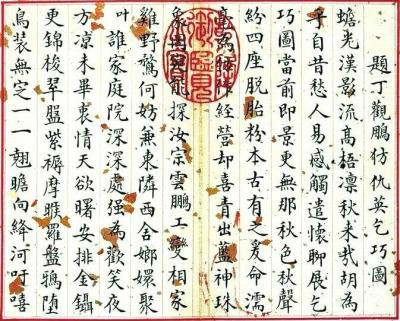 題丁觀鵬仿仇英乞巧圖
蟾光漢影流高梧凛秋来哉胡為
乎自昔愁人易感觸遣懷聊展乞
巧圖當前即景更無那秋色秋聲
紛四座脱胎粉本古有之爰命濡
毫為作經營却喜青出藍神珠
象罔能探汝宗雲鵬工相家
雞野鶩何妨兼東隣西舍嫏嬛聚
叶誰家庭院深深處强為歡笑夜
方凉未畢衷情天欲曙安排金鑷
更錦梭翠盤紫褥摩睺羅盤鴉堕
鳥装無定一一翹瞻向絳河吁嘻